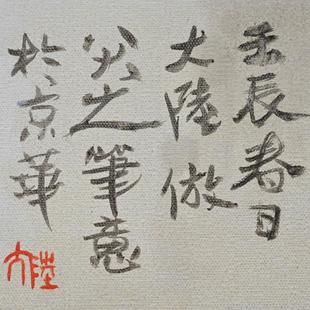 壬辰春日
大陸倣
之筆意
於京華
大陸